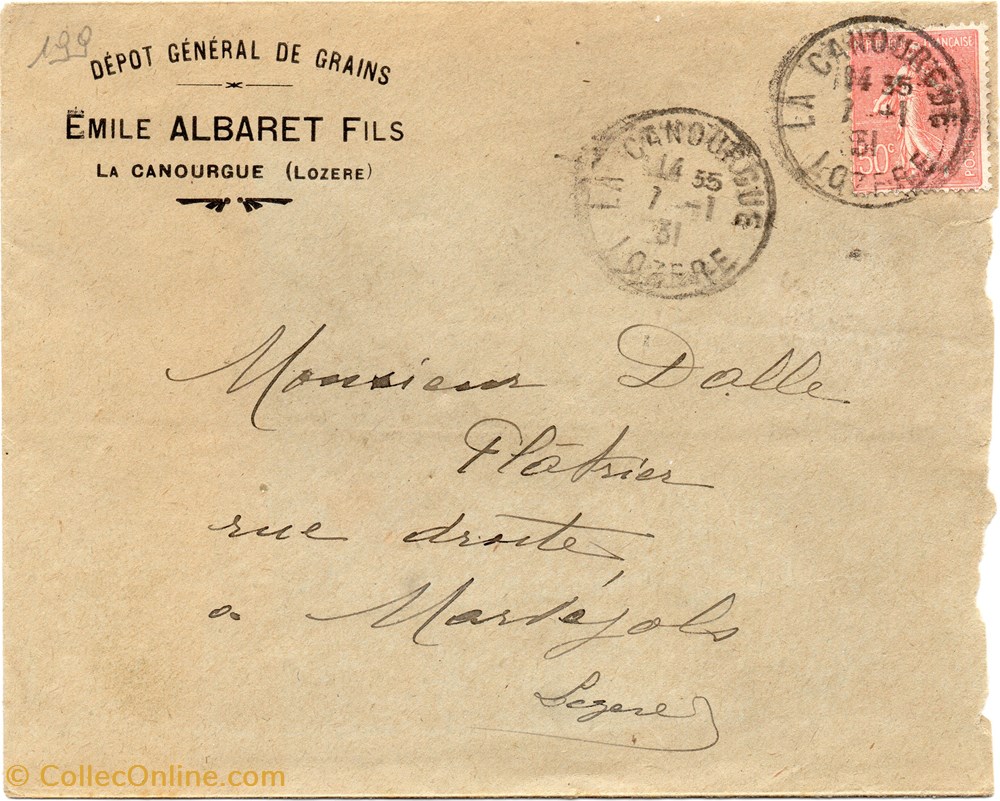 199
DÉPOT GÉNÉRAL DE GRAINS
ÉMILE ALBARET FILS
LA CANOURGUE (LOZERE)
LA CANOURGUE
14 35
7 -1
31
LOZERE
FRANÇAISE
50c
LA CANOURGUE
14 35
7 -1
31
LOZERE
Monsieur Dalle
Plâtrier
rue droite
a Marvéjols
Lozere
© CollecOnline.com